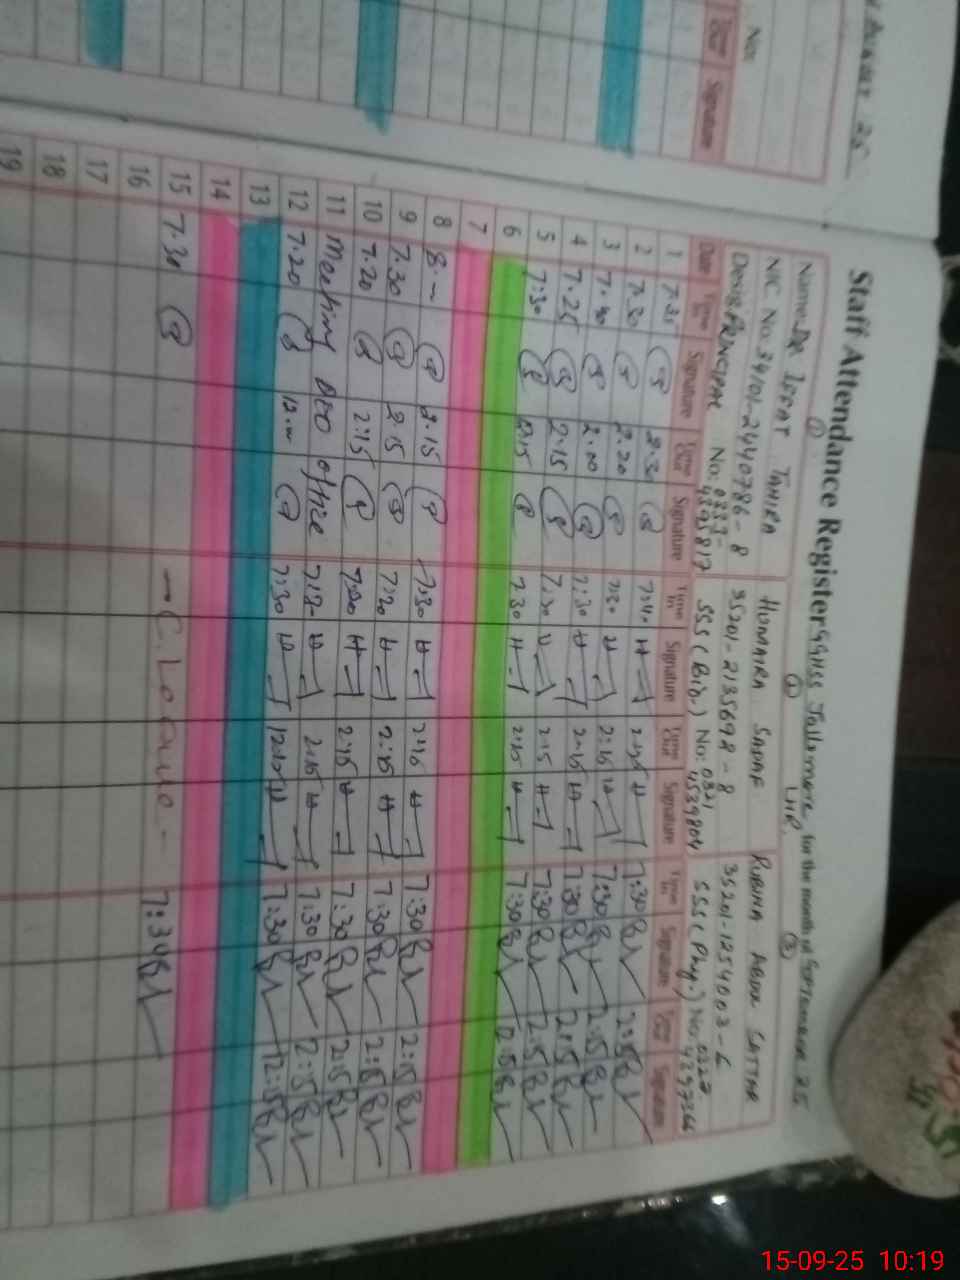 Staff Attendance Register GGHSS Jallo more, LHR. for the month of SEPTEMBER 25
① ② ③
Name: DR IFFAT TAHIRA HUMAIRA SADAF RUBINA ABDUL SATTAR
NIC No. 34101-2440786-8 35201-2135698-8 35201-1254003-6
Desig: PRINCIPAL No: SSS (Bio.) No: 0321 SSS (Phy.) No:
Date Time In Signature Time Out Signature Time In Signature Time Out Signature Time In Signature Time Out Signature
1 7.35 2.30 7:40 7:30
2 7.30 2.20 7:30 2:15 7:30 2:15
3 7.30 2.00 7:30 2:15 7:30 2:15
4 7.25 2.15 7:30 2:15 7:30 2:15
5 7:30 2.15 7:30 2:15 7:30 2:15
6
7
8 8.— 2.15 7:30 2:15 7:30 2:15
9 7.30 2.15 7:20 2:15 7:30 2:15
10 7.20 2:15 7:20 2:15 7:30 2:15
11 Meeting DEO office 2:15 7:30 2:15
12 7.20 12.— 7:30 12:15 7:30 12:15
13
14
15 7.30 — C. Leave — 7:34
16
17
18
19
No:
Signature
15-09-25 10:19